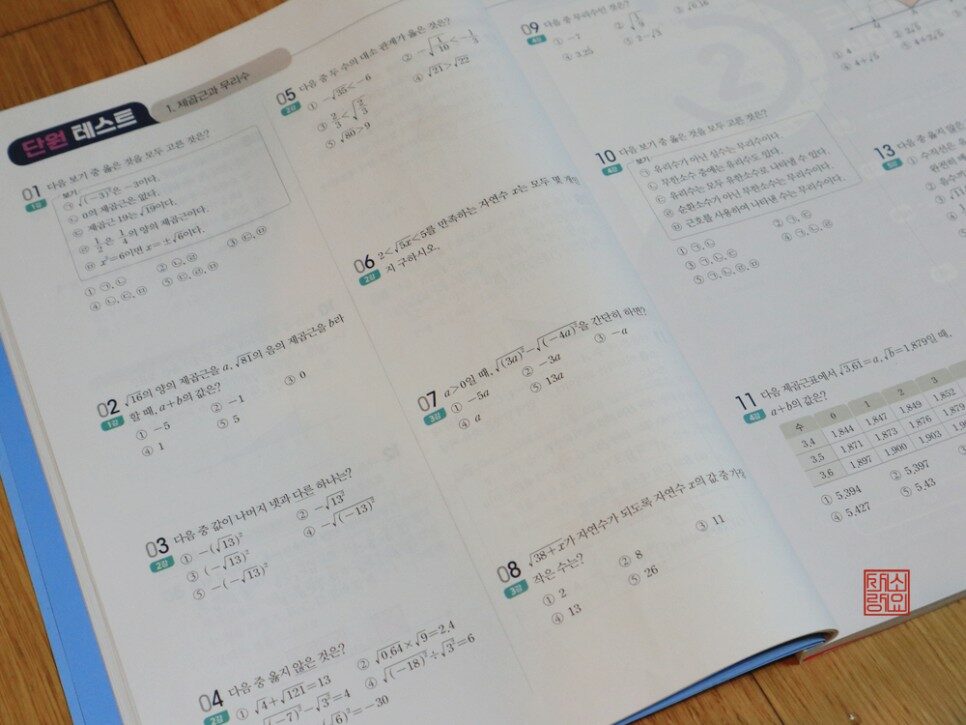 단원 테스트
1. 제곱근과 무리수
01 다음 보기 중 옳은 것을 모두 고른 것은?
1강
보기
㉠ √(−3)²은 −3이다.
㉡ 0의 제곱근은 없다.
㉢ 제곱근 19는 √19이다.
㉣ 1/2은 1/4의 양의 제곱근이다.
㉤ x²=6이면 x=±√6이다.
① ㉠, ㉡ ② ㉡, ㉣ ③ ㉢, ㉤
④ ㉡, ㉢, ㉤ ⑤ ㉢, ㉣, ㉤
02 √16의 양의 제곱근을 a, √81의 음의 제곱근을 b라
1강 할 때, a+b의 값은?
① −5 ② −1 ③ 0
④ 1 ⑤ 5
03 다음 중 값이 나머지 넷과 다른 하나는?
2강
① −(√13)² ② −√13²
③ (−√13)² ④ −√(−13)²
⑤ −(−√13)²
04 다음 중 옳지 않은 것은?
2강
① √4+√121=13 ② √0.64×√9=2.4
√(−7)²−√3²=4 ④ √(−18)²÷√3²=6
√6)²=−30
05 다음 중 두 수의 대소 관계가 옳은 것은?
2강
① −√35<−6 ② −√1/10<−1/3
③ 2/3<√2/3 ④ √21>√22
⑤ √80>9
06 2<√5x<5를 만족하는 자연수 x는 모두 몇 개인
2강 지 구하시오.
07 a>0일 때, √(3a)²−√(−4a)²을 간단히 하면?
3강
① −5a ② −3a ③ −a
④ a ⑤ 13a
08 √38+x가 자연수가 되도록 자연수 x의 값 중 가장
3강 작은 수는?
① 2 ② 8 ③ 11
④ 13 ⑤ 26
09 다음 중 무리수인 것은?
4강
① −7 ③ √0.16
④ 3.25 ⑤ 2−√3
④ 4+√5 ⑤ 4+2√5
10 다음 보기 중 옳은 것을 모두 고른 것은?
4강
보기
㉠ 유리수가 아닌 실수는 무리수이다.
㉡ 무한소수 중에는 유리수도 있다.
㉢ 유리수는 모두 유한소수로 나타낼 수 있다.
㉣ 순환소수가 아닌 무한소수는 무리수이다.
㉤ 근호를 사용하여 나타낸 수는 무리수이다.
① ㉠, ㉡ ② ㉠, ㉢
11 다음 제곱근표에서 √3.61=a, √b=1.879일 때,
4강 a+b의 값은?
수 0 1 2 3
3.4 1.844 1.847 1.849 1.852
3.5 1.871 1.873 1.876 1.879
3.6 1.897 1.900 1.903
① 5.394 ② 5.397
④ 5.427 ⑤ 5.43
13 다음 중 옳지 않은
① 수직선은 유
완전히 메